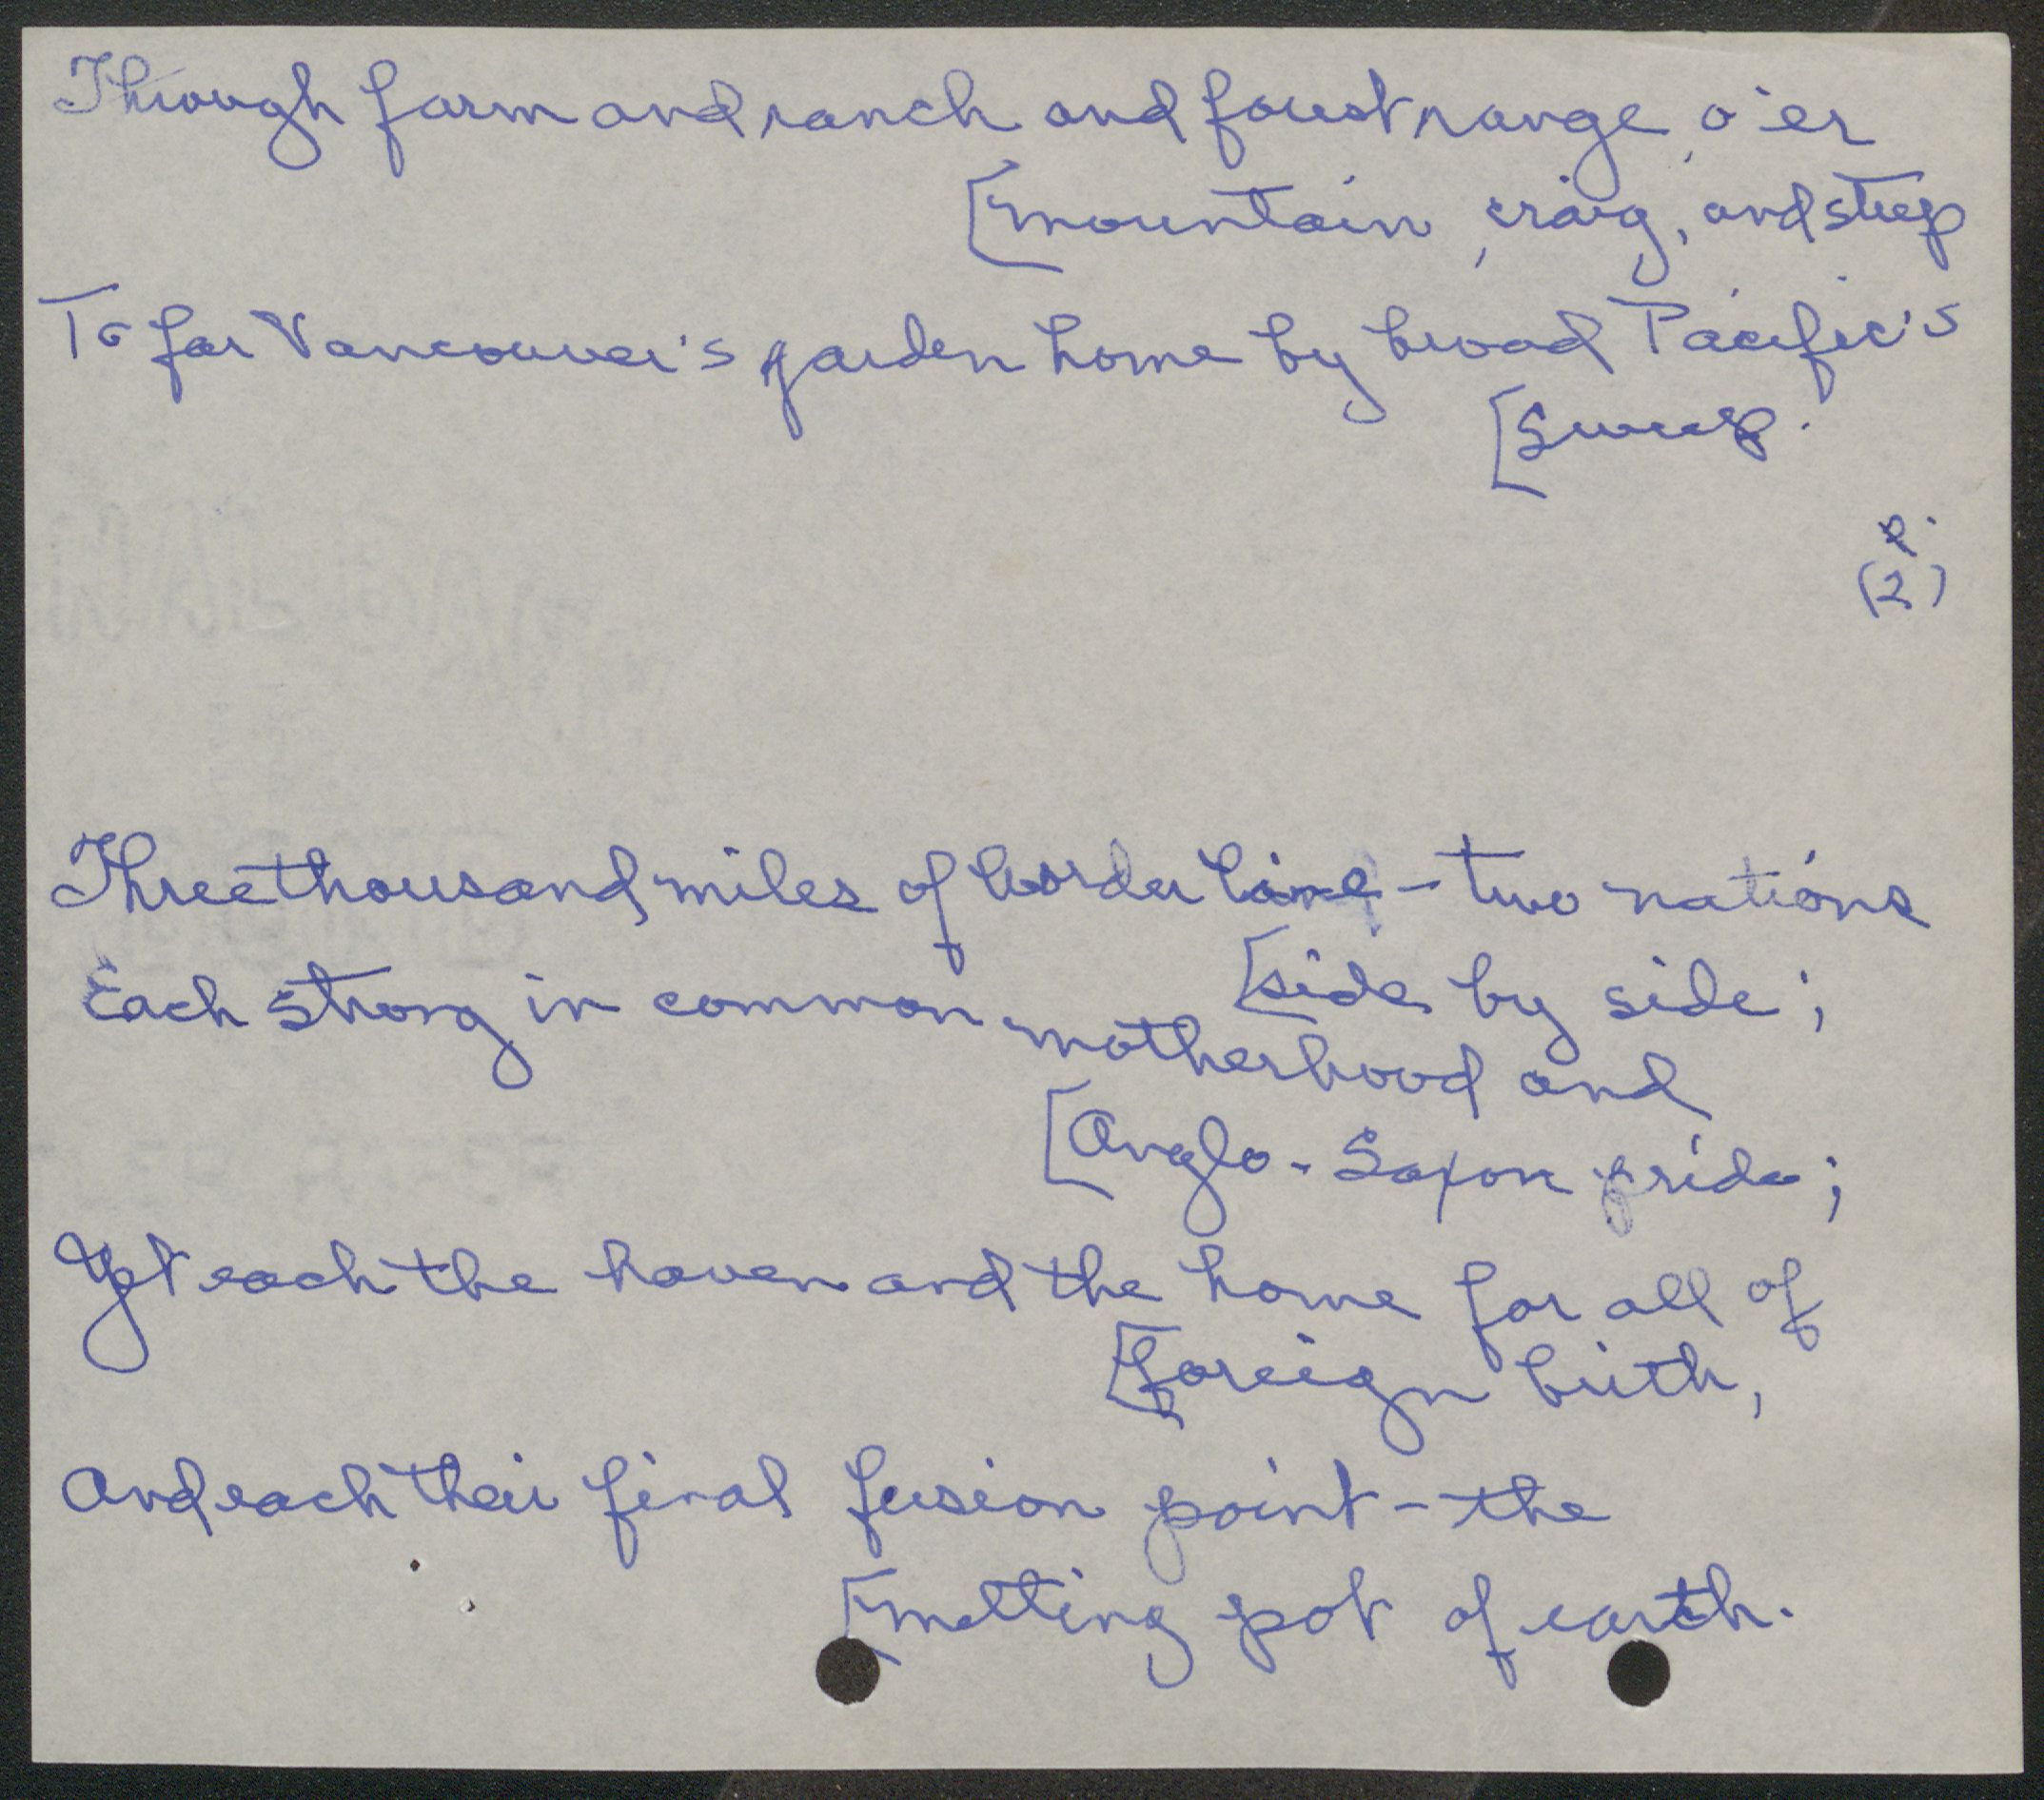 Through farm and ranch and forest range, o'er
[mountain, craig, and steep
To far Vancouver's garden home by broad Pacific's
[Sweep.
p.
(2)
Three thousand miles of border line - two nations
[side by side;
Each strong in common motherhood and
[Anglo-Saxon pride;
Yet each the haven and the home for all of
[foreign birth,
And each their final fusion point - the
[melting pot of earth.